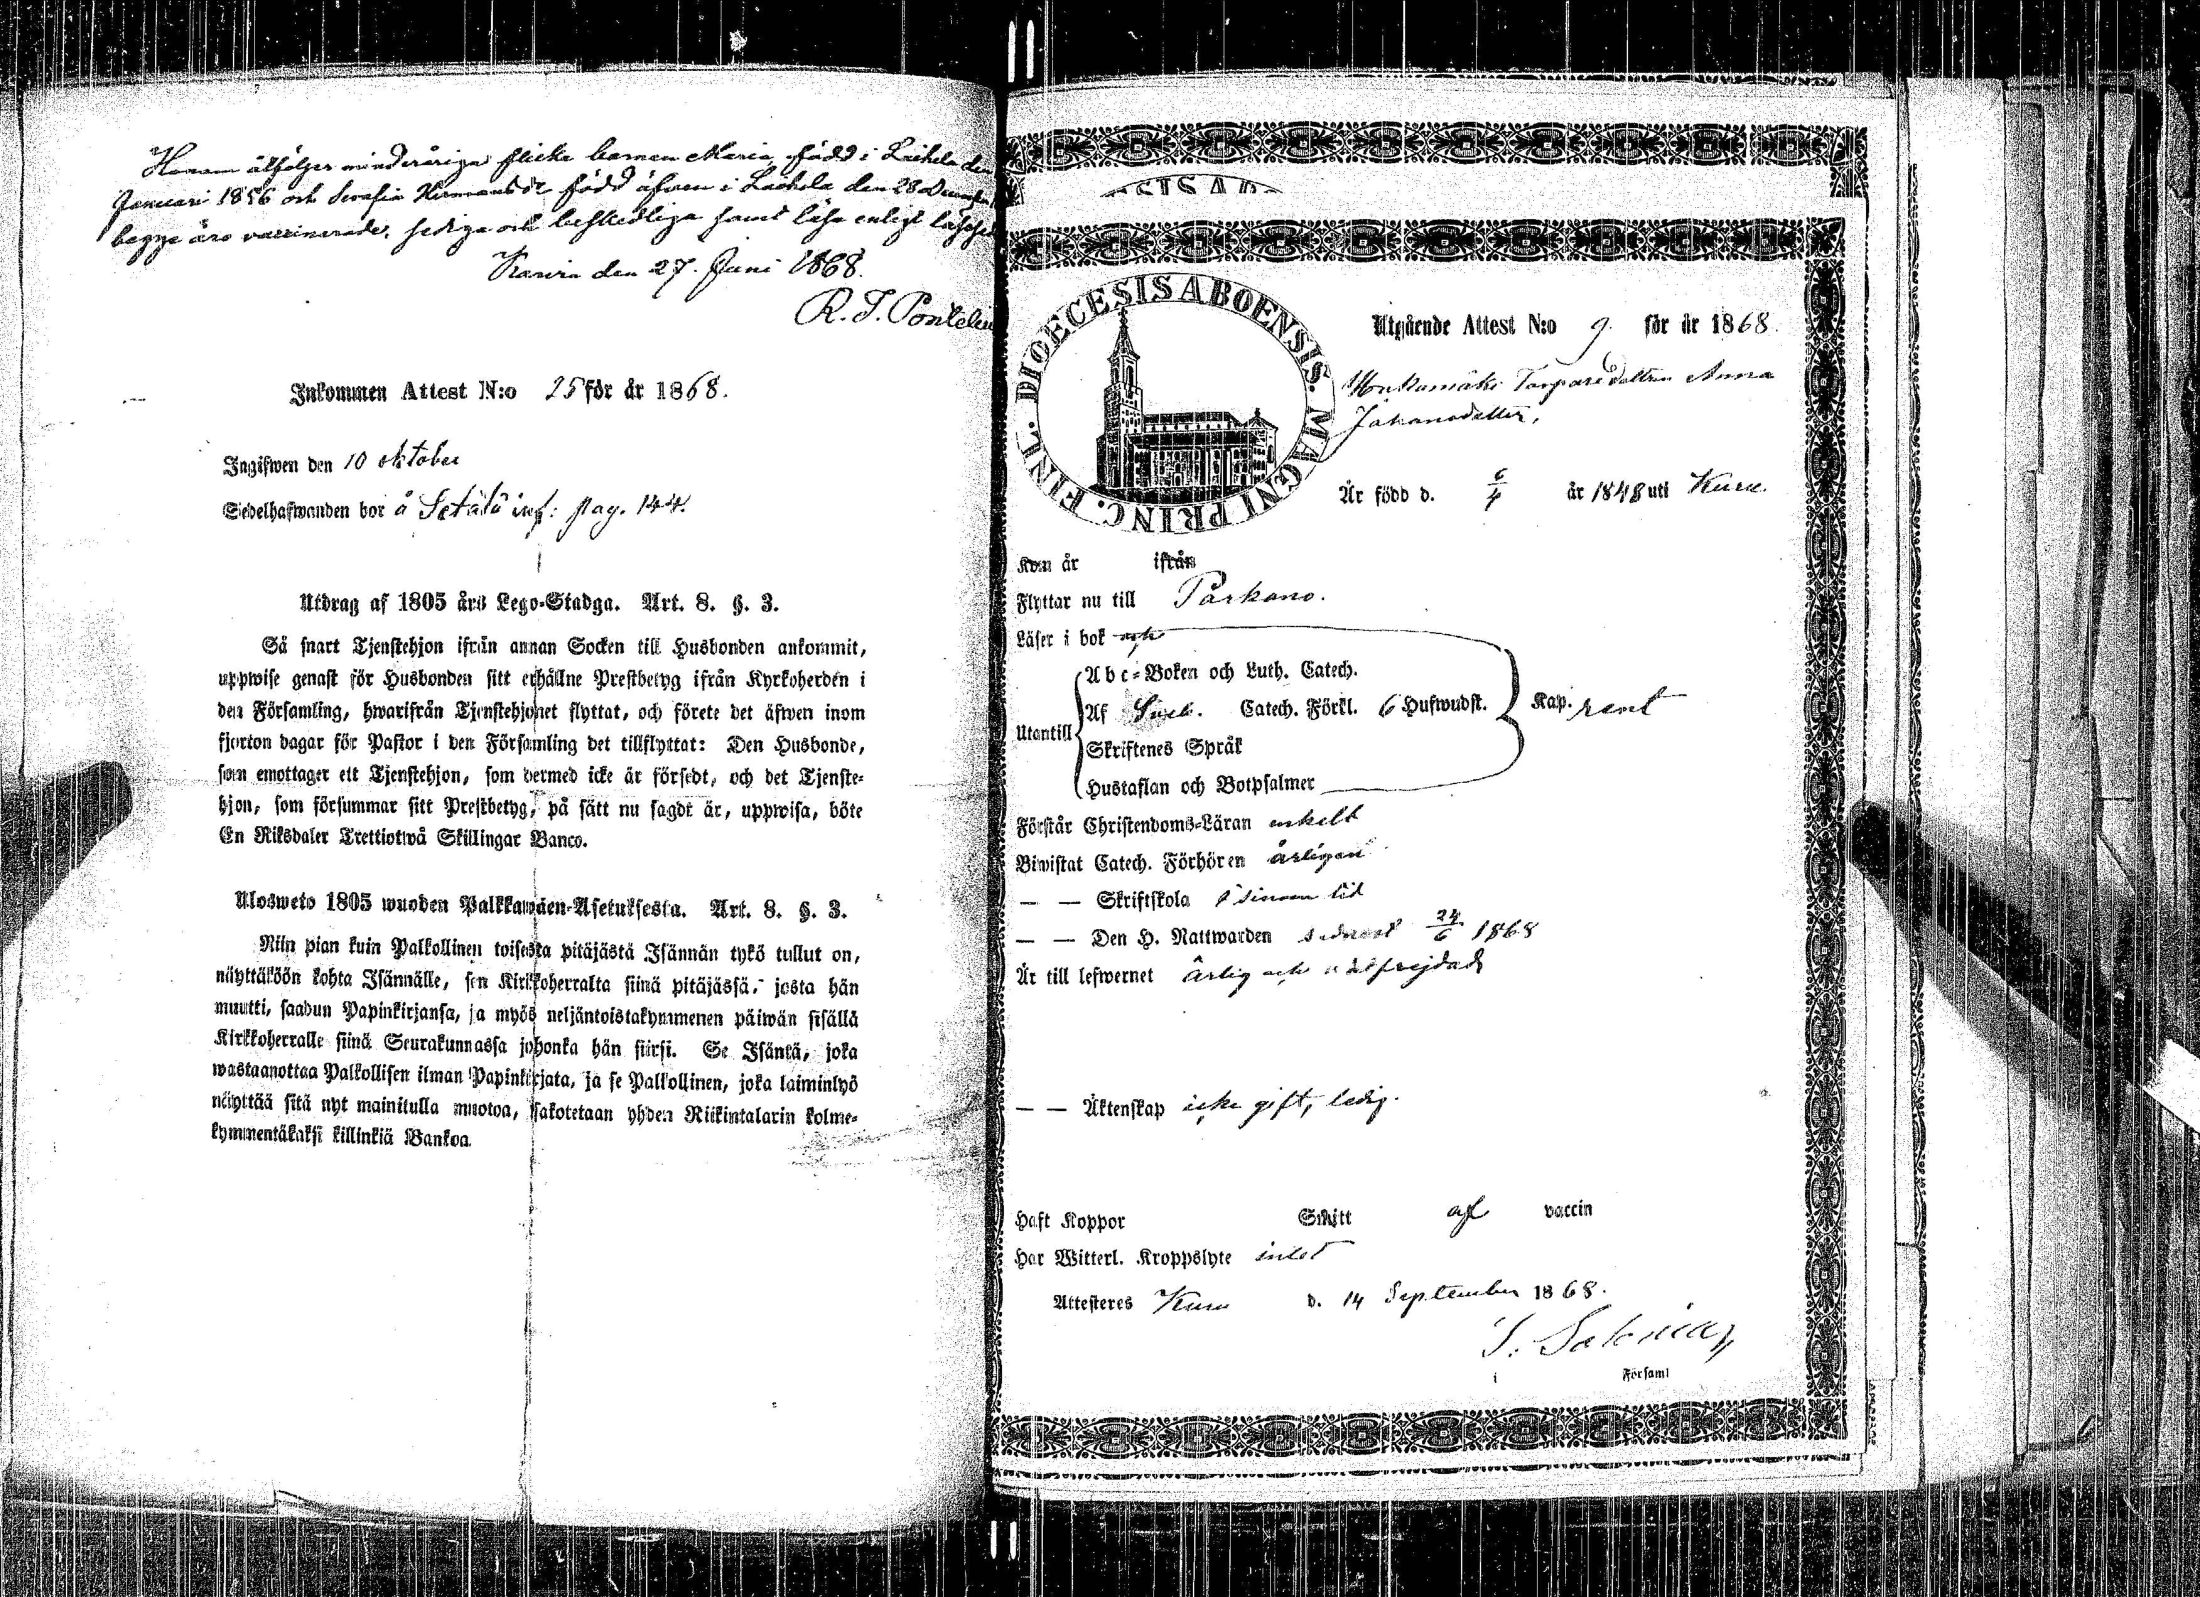 Honom åtföljer minderåriga flicke barnen Maria, född i Laihela den
Januari 1856 och Serafia född äfven i Laihela den 28 December
begge äro vaccinerade, sediga och beskedliga samt läsa enligt
Karvia den 27. Juni 1868.
R. J. Pontelius
Inkommen Attest N:o 25 för år 1868.
Ingifwen den 10 oktober
Sedelhafwanden bor å Setälä inf: pag. 144.
Utdrag af 1805 års Lego-Stadga. Art. 8. §. 3.
Så snart Tjenstehjon ifrån annan Socken till Husbonden ankommit,
uppwise genast för Husbonden sitt erhållne Prestbetyg ifrån Kyrkoherden i
den Församling, hwarifrån Tjenstehjonet flyttat, och förete det äfwen inom
fjorton dagar för Pastor i den Församling det tillflyttat: Den Husbonde,
som emottager ett Tjenstehjon, som dermed icke är försedt, och det Tjenste-
hjon, som försummar sitt Prestbetyg, på sätt nu sagdt är, uppwisa, böte
En Riksdaler Trettiotwå Skillingar Banco.
Ulosweto 1805 wuoden Palkkawäen-Asetuksesta. Art. 8. §. 3.
Niin pian kuin Palkollinen toisesta pitäjästä Isännän tykö tullut on,
näyttäköön kohta Isännälle, sen Kirkkoherralta siinä pitäjässä, josta hän
muutti, saadun Papinkirjansa, ja myös neljäntoistakymmenen päiwän sisällä
Kirkkoherralle siinä Seurakunnassa johonka hän siirsi. Se Isäntä, joka
wastaanottaa Palkollisen ilman Papinkirjata, ja se Palkollinen, joka laiminlyö
näyttää sitä nyt mainitulla muotoa, sakotetaan yhden Riikintalarin kolme-
kymmentäkaksi killinkiä Bankoa.
DIOECESIS ABOENSIS. MAGNI PRINC. FINL.
Utgående Attest N:o 9. för år 1868.
Torparedottren Anna
Johansdotter,
Är född d. 6/4 år 1848 uti Kuru.
Kom år ifrån
Flyttar nu till Parkano.
Läser i bok och
Utantill
Abc-Boken och Luth. Catech.
Af Sveb. Catech. Förkl. 6 Hufwudst. Kap. rent
Skriftenes Språk
Hustaflan och Botpsalmer
Förstår Christendoms-Läran enkelt
Biwistat Catech. Förhören årligen
— — Skriftskola i sinom tid
— — Den H. Nattwarden sednast 24/6 1868
Är till lefwernet ärlig och wälfrejdad
— — Äktenskap icke gift, ledig.
Haft Koppor Smitt af vaccin
Har Witterl. Kroppslyte intet
Attesteres Kuru d. 14 September 1868.
i Församl